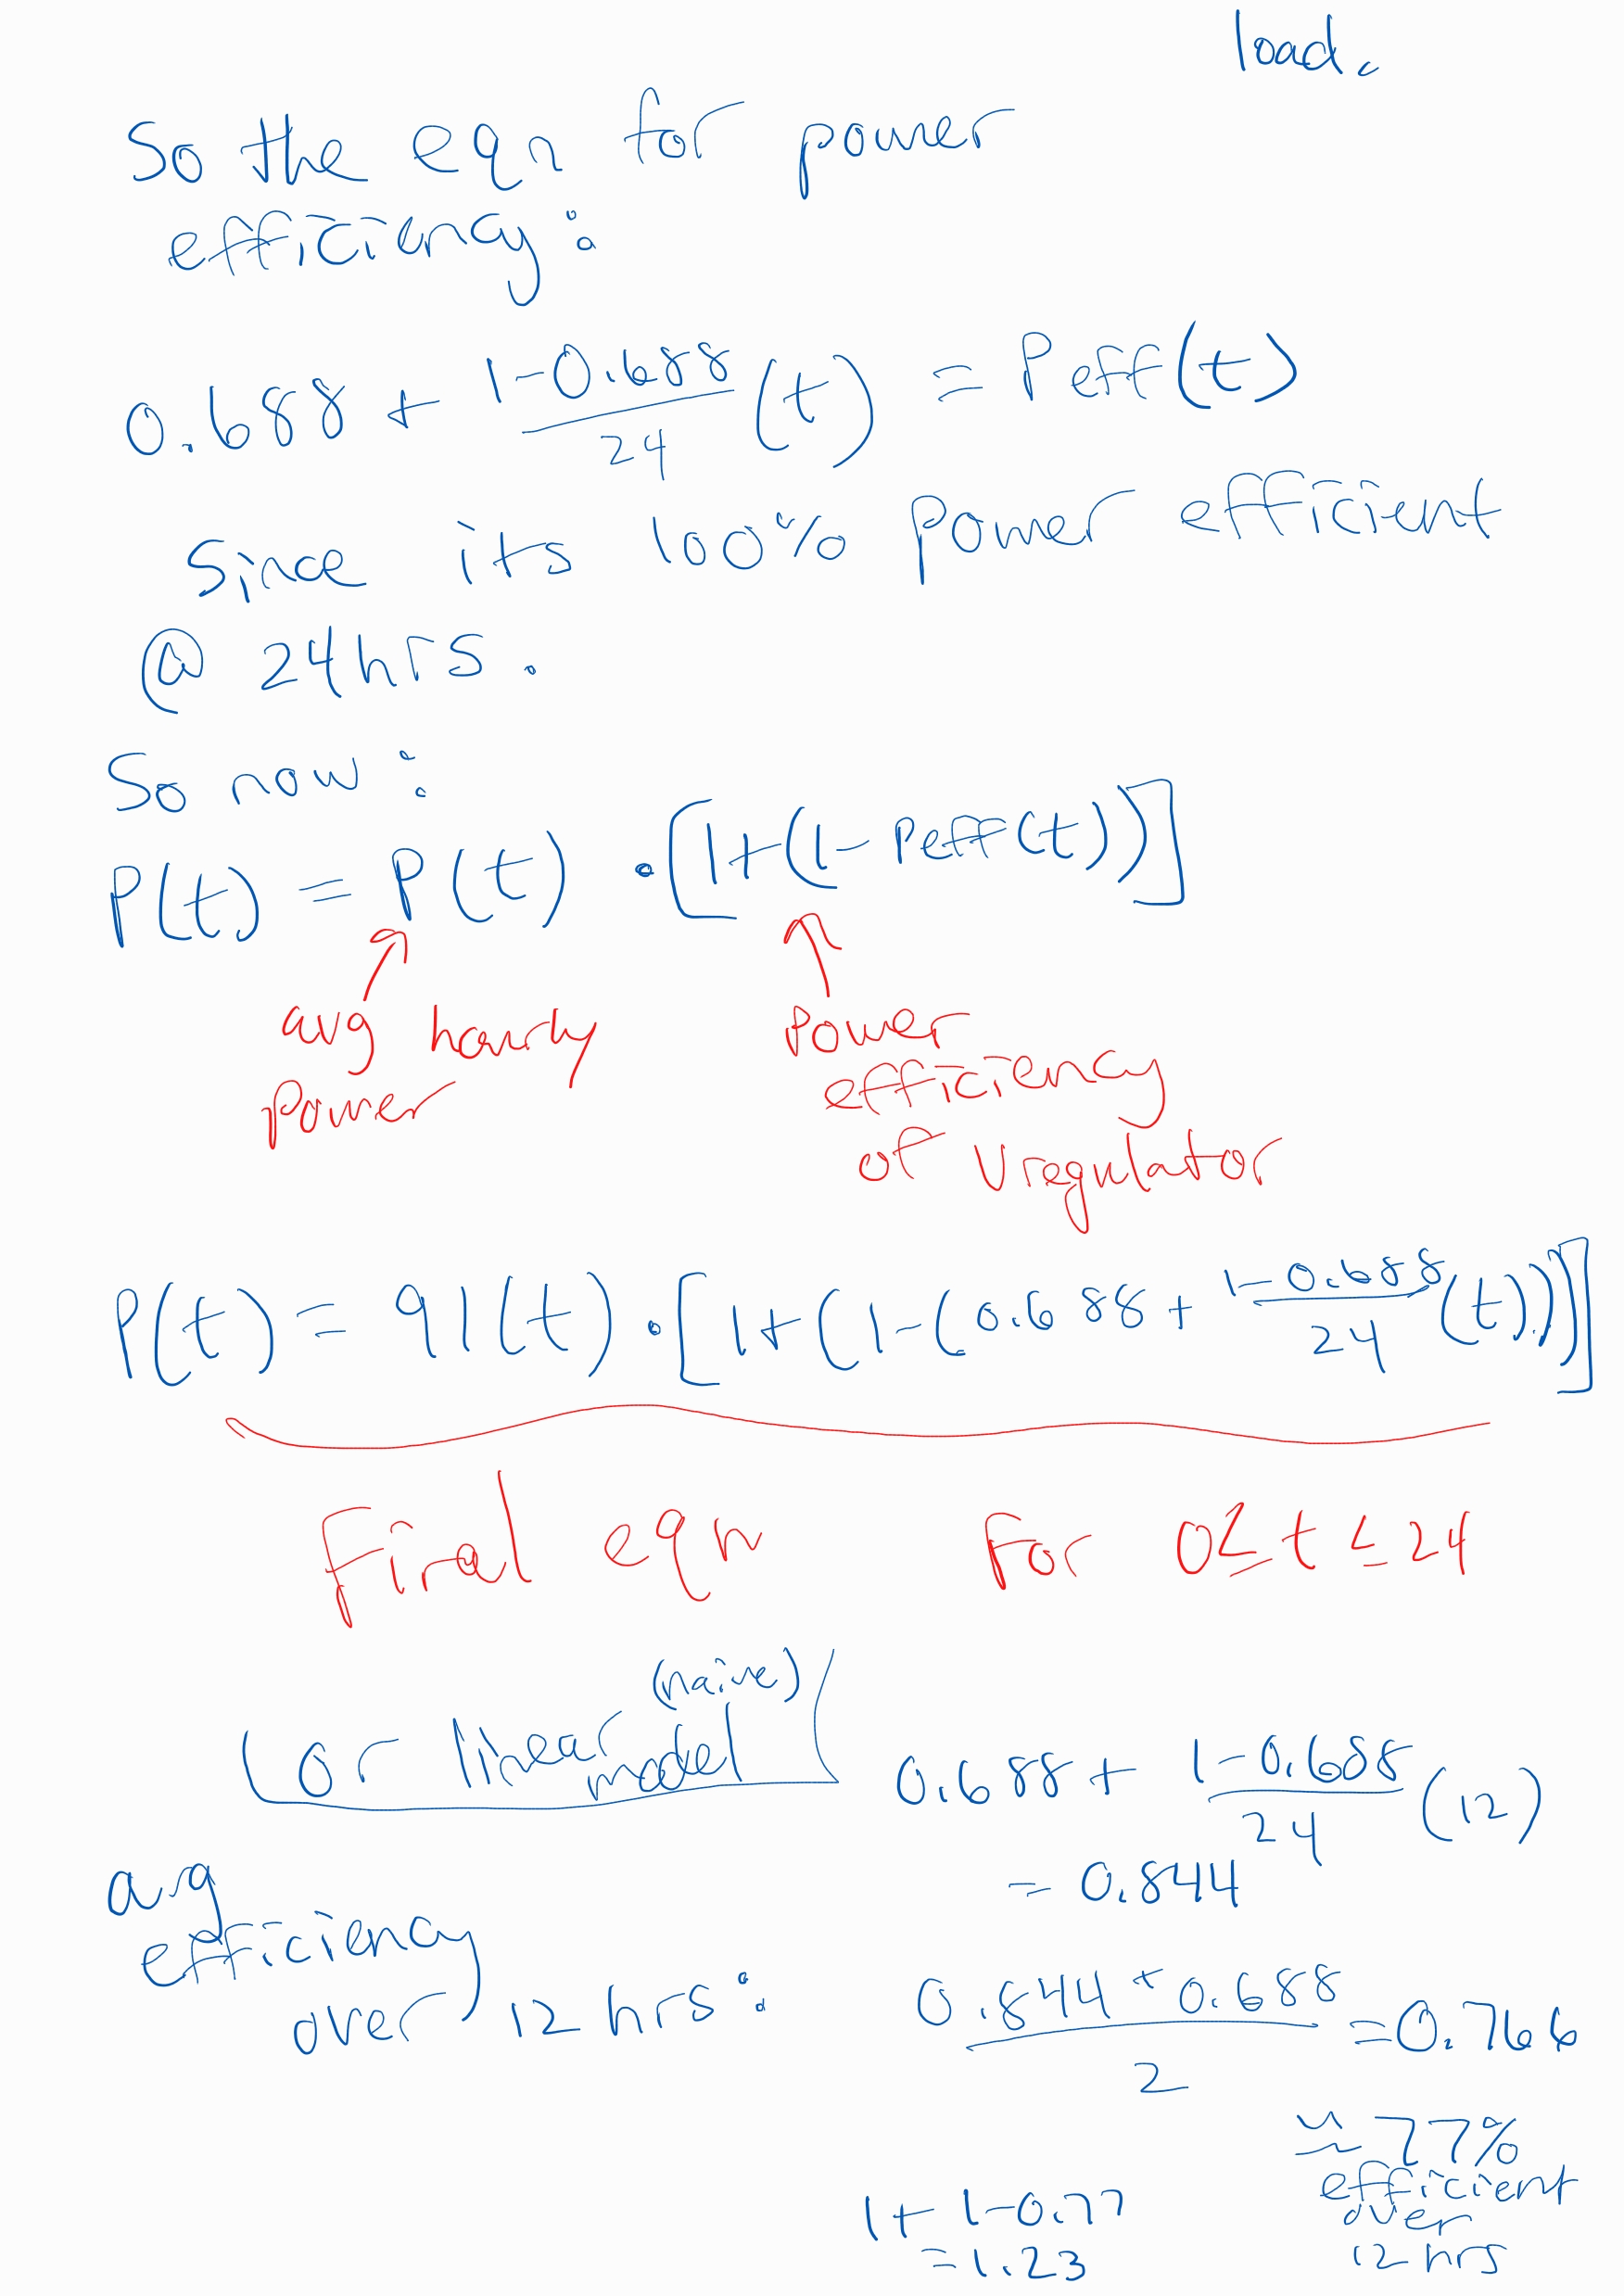 load.
So the eqn for power
efficiency:
0.688 + (1-0.688)/24 (t) = Peff(t)
since its 100% power efficient
@ 24hrs.
So now:
P(t) = P(t) · [1+(1-Peff(t))]
avg hourly
power
Power
efficiency
of Vregulator
P(t) = 91(t) · [1+(1-(0.688 + (1-0.688)/24 (t)))]
Final eqn For 0≤t≤24
or linear (naive)
model
0.688 + (1-0.688)/24 (12)
= 0.844
avg
efficiency
over 12 hrs:
(0.844+0.688)/2 = 0.766
≈ 77%
efficient
over
12 hrs
1+1-0.77
=1.23